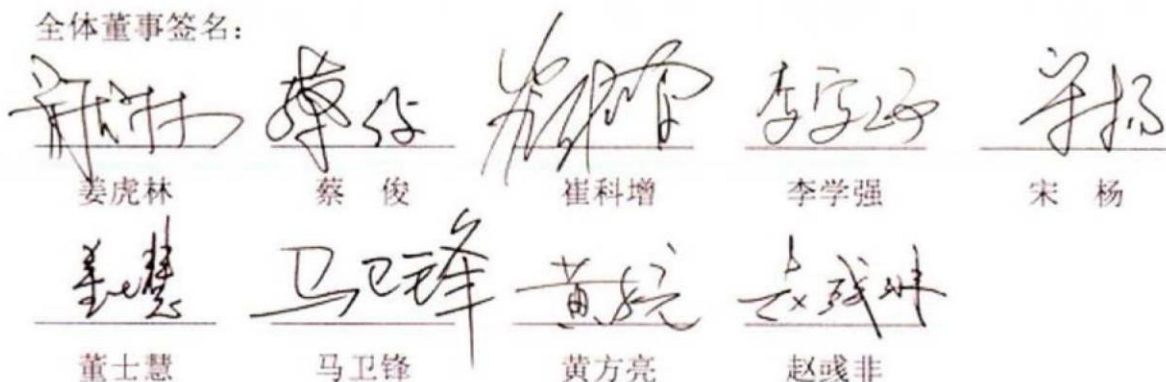 全体董事签名：
姜虎林 蔡 俊 崔科增 李学强 宋 杨
董士慧 马卫锋 黄方亮 赵彧非